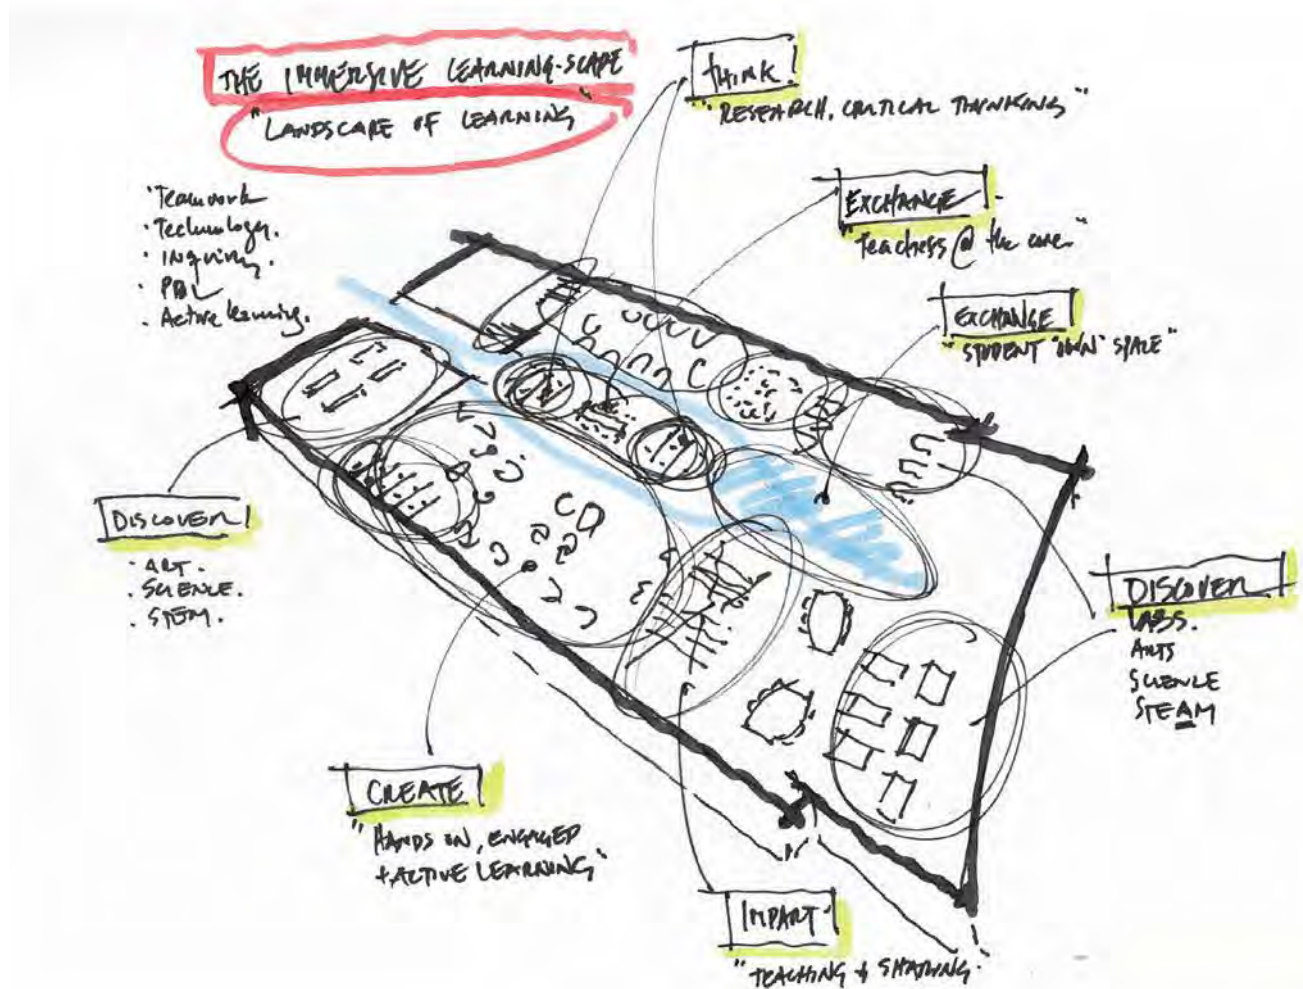 THE IMMERSIVE LEARNING-SCAPE
"LANDSCAPE OF LEARNING"
· Teamwork
· Technology.
· Inquiry.
· PBL
· Active learning.
THINK
"RESEARCH, CRITICAL THINKING"
EXCHANGE
"Teachers @ the core"
EXCHANGE
"STUDENT 'OWN' SPACE"
DISCOVER
· ART.
· SCIENCE.
· STEM.
DISCOVER
LABS.
ARTS
SCIENCE
STEAM
CREATE
"HANDS ON, ENGAGED
+ ACTIVE LEARNING"
IMPART
"TEACHING + SHARING.